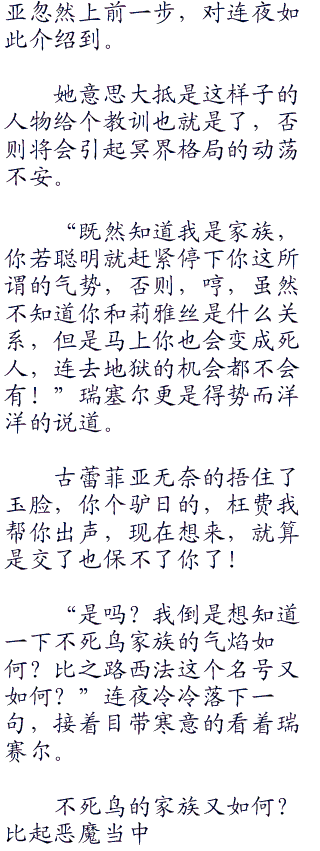 亚忽然上前一步，对连夜如
此介绍到。
她意思大抵是这样子的
人物给个教训也就是了，否
则将会引起冥界格局的动荡
不安。
“既然知道我是家族，
你若聪明就赶紧停下你这所
谓的气势，否则，哼，虽然
不知道你和莉雅丝是什么关
系，但是马上你也会变成死
人，连去地狱的机会都不会
有！”瑞塞尔更是得势而洋
洋的说道。
古蕾菲亚无奈的捂住了
玉脸，你个驴日的，枉费我
帮你出声，现在想来，就算
是交了也保不了你了！
“是吗？我倒是想知道
一下不死鸟家族的气焰如
何？比之路西法这个名号又
如何？”连夜冷冷落下一
句，接着目带寒意的看着瑞
赛尔。
不死鸟的家族又如何？
比起恶魔当中